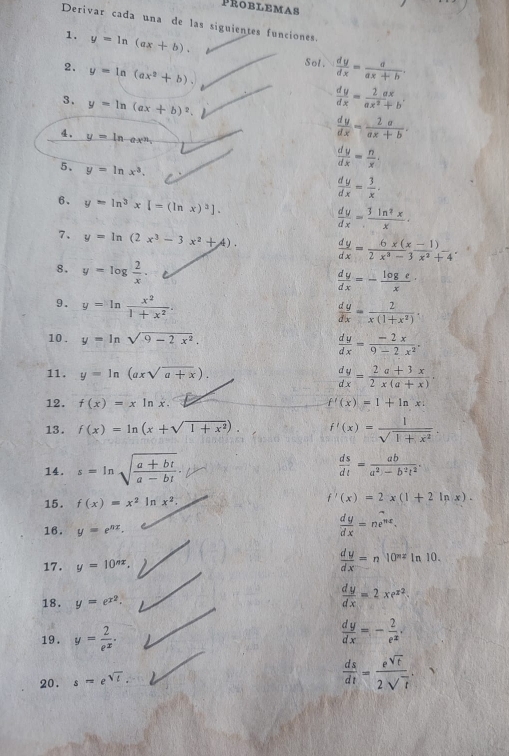 PROBLEMAS
Derivar cada una de las siguientes funciones.
1. y = ln (ax + b). Sol. dy/dx = a/(ax + b).
2. y = ln (ax² + b). dy/dx = 2 ax/(ax² + b).
3. y = ln (ax + b)². dy/dx = 2 a/(ax + b).
4. y = ln axⁿ. dy/dx = n/x.
5. y = ln x³. dy/dx = 3/x.
6. y = ln³ x [= (ln x)³]. dy/dx = 3 ln² x/x.
7. y = ln (2 x³ − 3 x² + 4). dy/dx = 6 x(x − 1)/(2 x³ − 3 x² + 4).
8. y = log 2/x. dy/dx = − log e/x.
9. y = ln x²/(1 + x²). dy/dx = 2/(x(1+x²)).
10. y = ln √(9 − 2 x²). dy/dx = − 2 x/(9 − 2 x²).
11. y = ln (ax√(a + x)). dy/dx = (2 a + 3 x)/(2 x(a + x)).
12. f(x) = x ln x. f'(x) = 1 + ln x.
13. f(x) = ln (x + √(1 + x²)). f'(x) = 1/√(1 + x²).
14. s = ln √((a + bt)/(a − bt)). ds/dt = ab/(a² − b²t²).
15. f(x) = x² ln x². f'(x) = 2 x(1 + 2 ln x).
16. y = eⁿˣ. dy/dx = neⁿˣ.
17. y = 10ⁿˣ. dy/dx = n 10ⁿˣ ln 10.
18. y = e^x². dy/dx = 2 xe^x².
19. y = 2/eˣ. dy/dx = − 2/eˣ.
20. s = e^√t. ds/dt = e^√t/(2 √t).